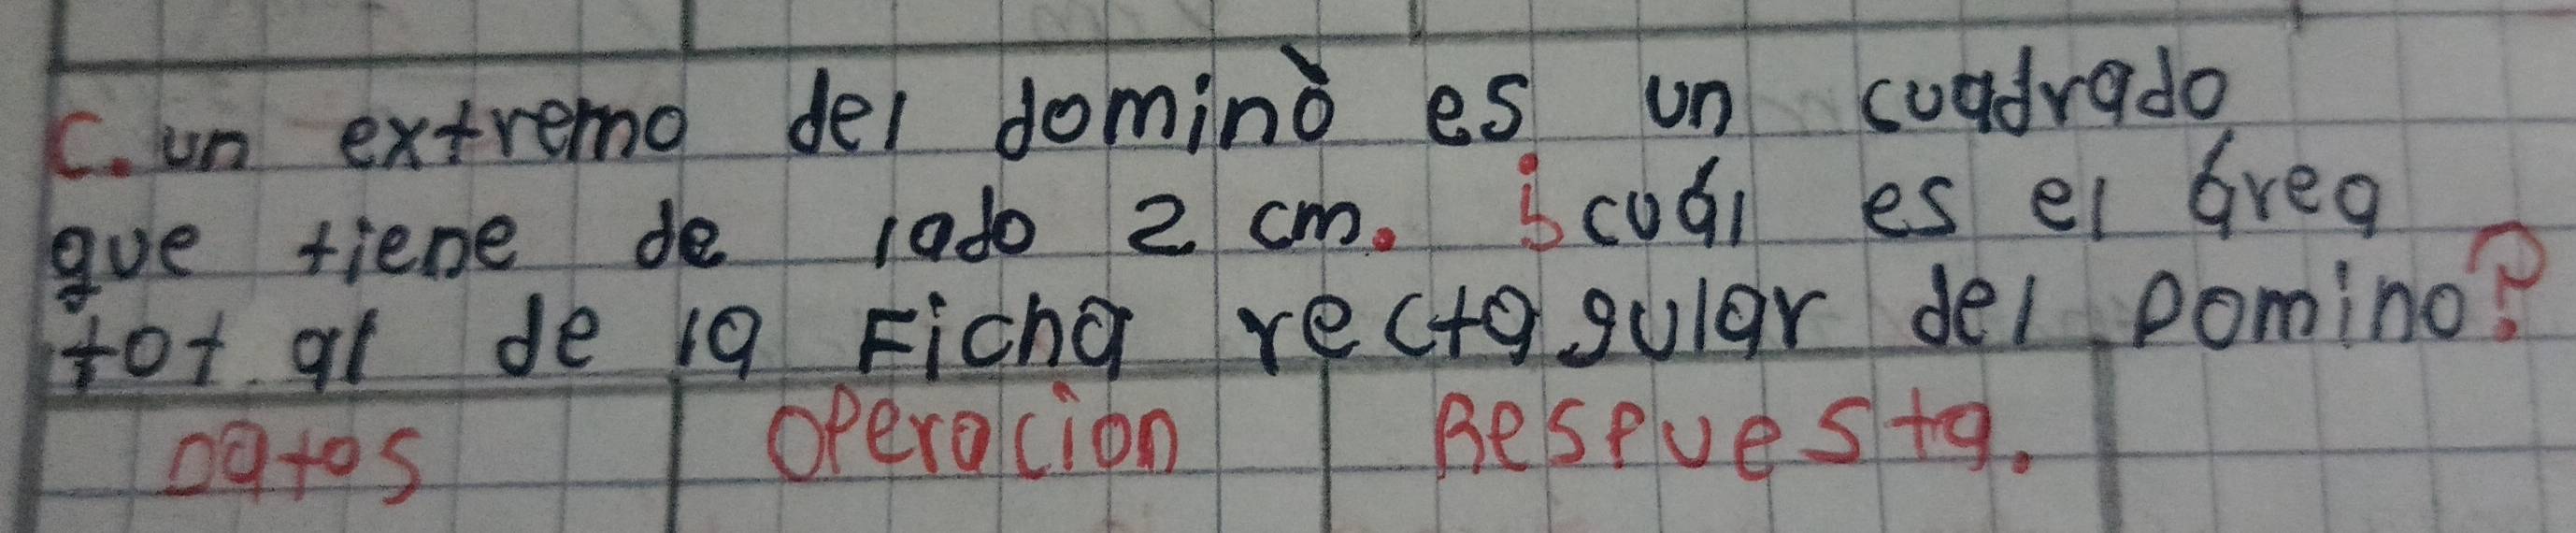 C. un extremo del dominò es un cuadrado
que tiene de lado 2 cm. ¿cuál es el área
tot al de la Ficha rectagular del Domino?
Datos Operacion Respuesta.